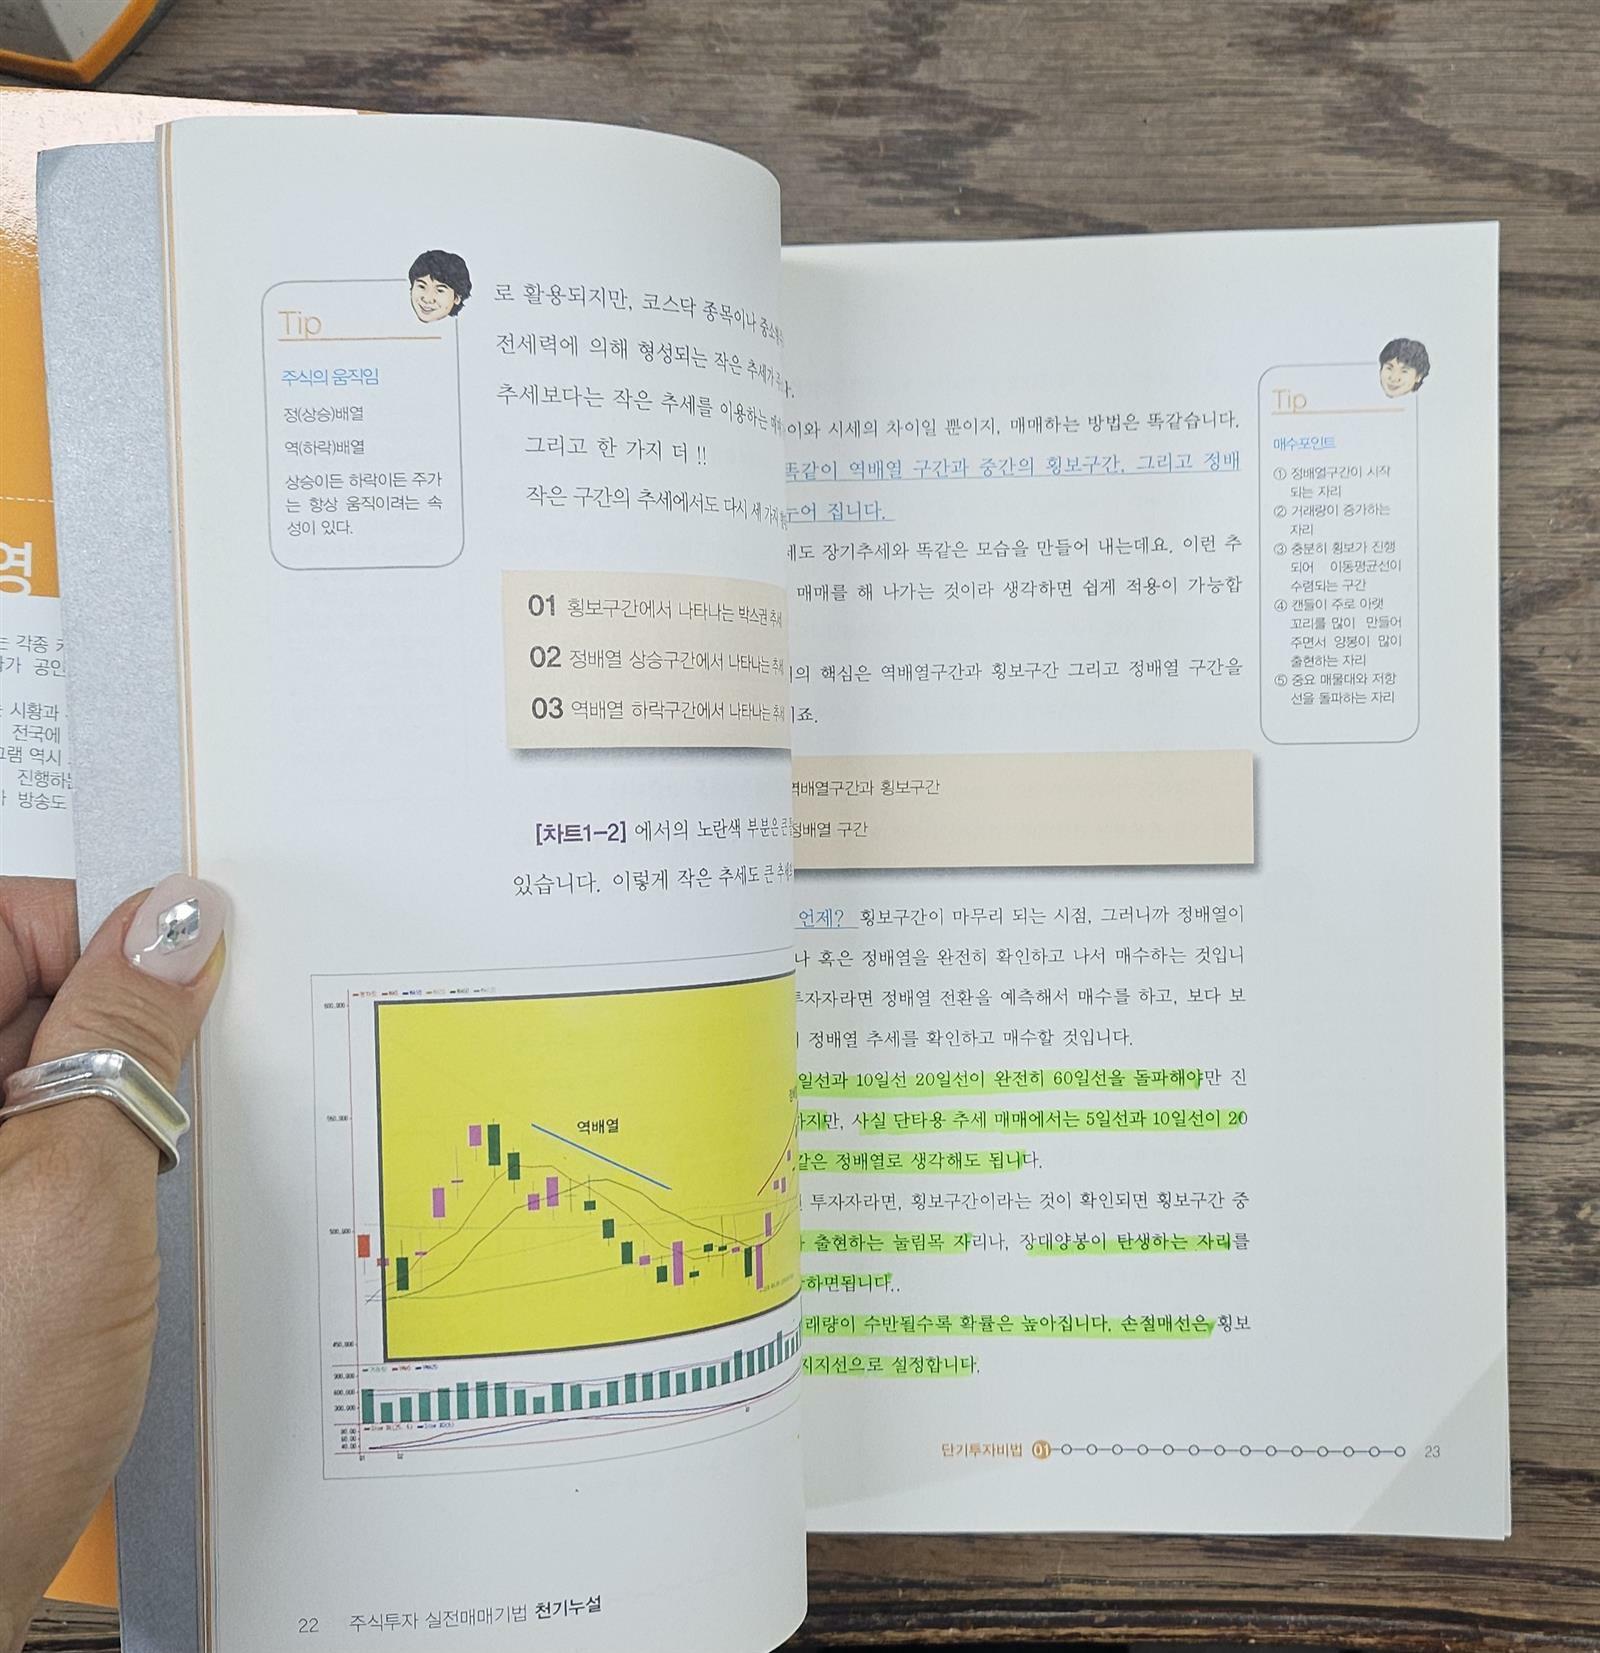 영
각종
가 공인
시황과
전국에
그램 역시
진행하는
방송도
Tip
주식의 움직임
정(상승)배열
역(하락)배열
상승이든 하락이든 주가
는 항상 움직이려는 속
성이 있다.
로 활용되지만, 코스닥 종목이나
전세력에 의해 형성되는 작은 추세가
추세보다는 작은 추세를 이용하는
그리고 한 가지 더 !!
작은 구간의 추세에서도 다시 세 가지
01 횡보구간에서 나타나는 박스권 추세
02 정배열 상승구간에서 나타나는 추세
03 역배열 하락구간에서 나타나는 추세
[차트1-2] 에서의 노란색 부분은 큰
있습니다. 이렇게 작은 추세도 큰
600,000
550,000
500,000
450,000
역배열
900,000
600,000
300,000
80.00
60.00
40.00
22 주식투자 실전매매기법 천기누설
이와 시세의 차이일 뿐이지, 매매하는 방법은 똑같습니다.
똑같이 역배열 구간과 중간의 횡보구간, 그리고 정배
누어 집니다.
세도 장기추세와 똑같은 모습을 만들어 내는데요. 이런 추
매매를 해 나가는 것이라 생각하면 쉽게 적용이 가능합
의 핵심은 역배열구간과 횡보구간 그리고 정배열 구간을
이죠.
역배열구간과 횡보구간
정배열 구간
언제? 횡보구간이 마무리 되는 시점, 그러니까 정배열이
나 혹은 정배열을 완전히 확인하고 나서 매수하는 것입니
투자자라면 정배열 전환을 예측해서 매수를 하고, 보다 보
정배열 추세를 확인하고 매수할 것입니다.
일선과 10일선 20일선이 완전히 60일선을 돌파해야만 진
하지만, 사실 단타용 추세 매매에서는 5일선과 10일선이 20
같은 정배열로 생각해도 됩니다.
투자자라면, 횡보구간이라는 것이 확인되면 횡보구간 중
출현하는 눌림목 자리나, 장대양봉이 탄생하는 자리를
하면됩니다..
래량이 수반될수록 확률은 높아집니다. 손절매선은 횡보
지지선으로 설정합니다.
Tip
매수포인트
① 정배열구간이 시작
되는 자리
② 거래량이 증가하는
자리
③ 충분히 횡보가 진행
되어 이동평균선이
수렴되는 구간
④ 캔들이 주로 아랫
꼬리를 많이 만들어
주면서 양봉이 많이
출현하는 자리
⑤ 중요 매물대와 저항
선을 돌파하는 자리
단기투자비법 01 23